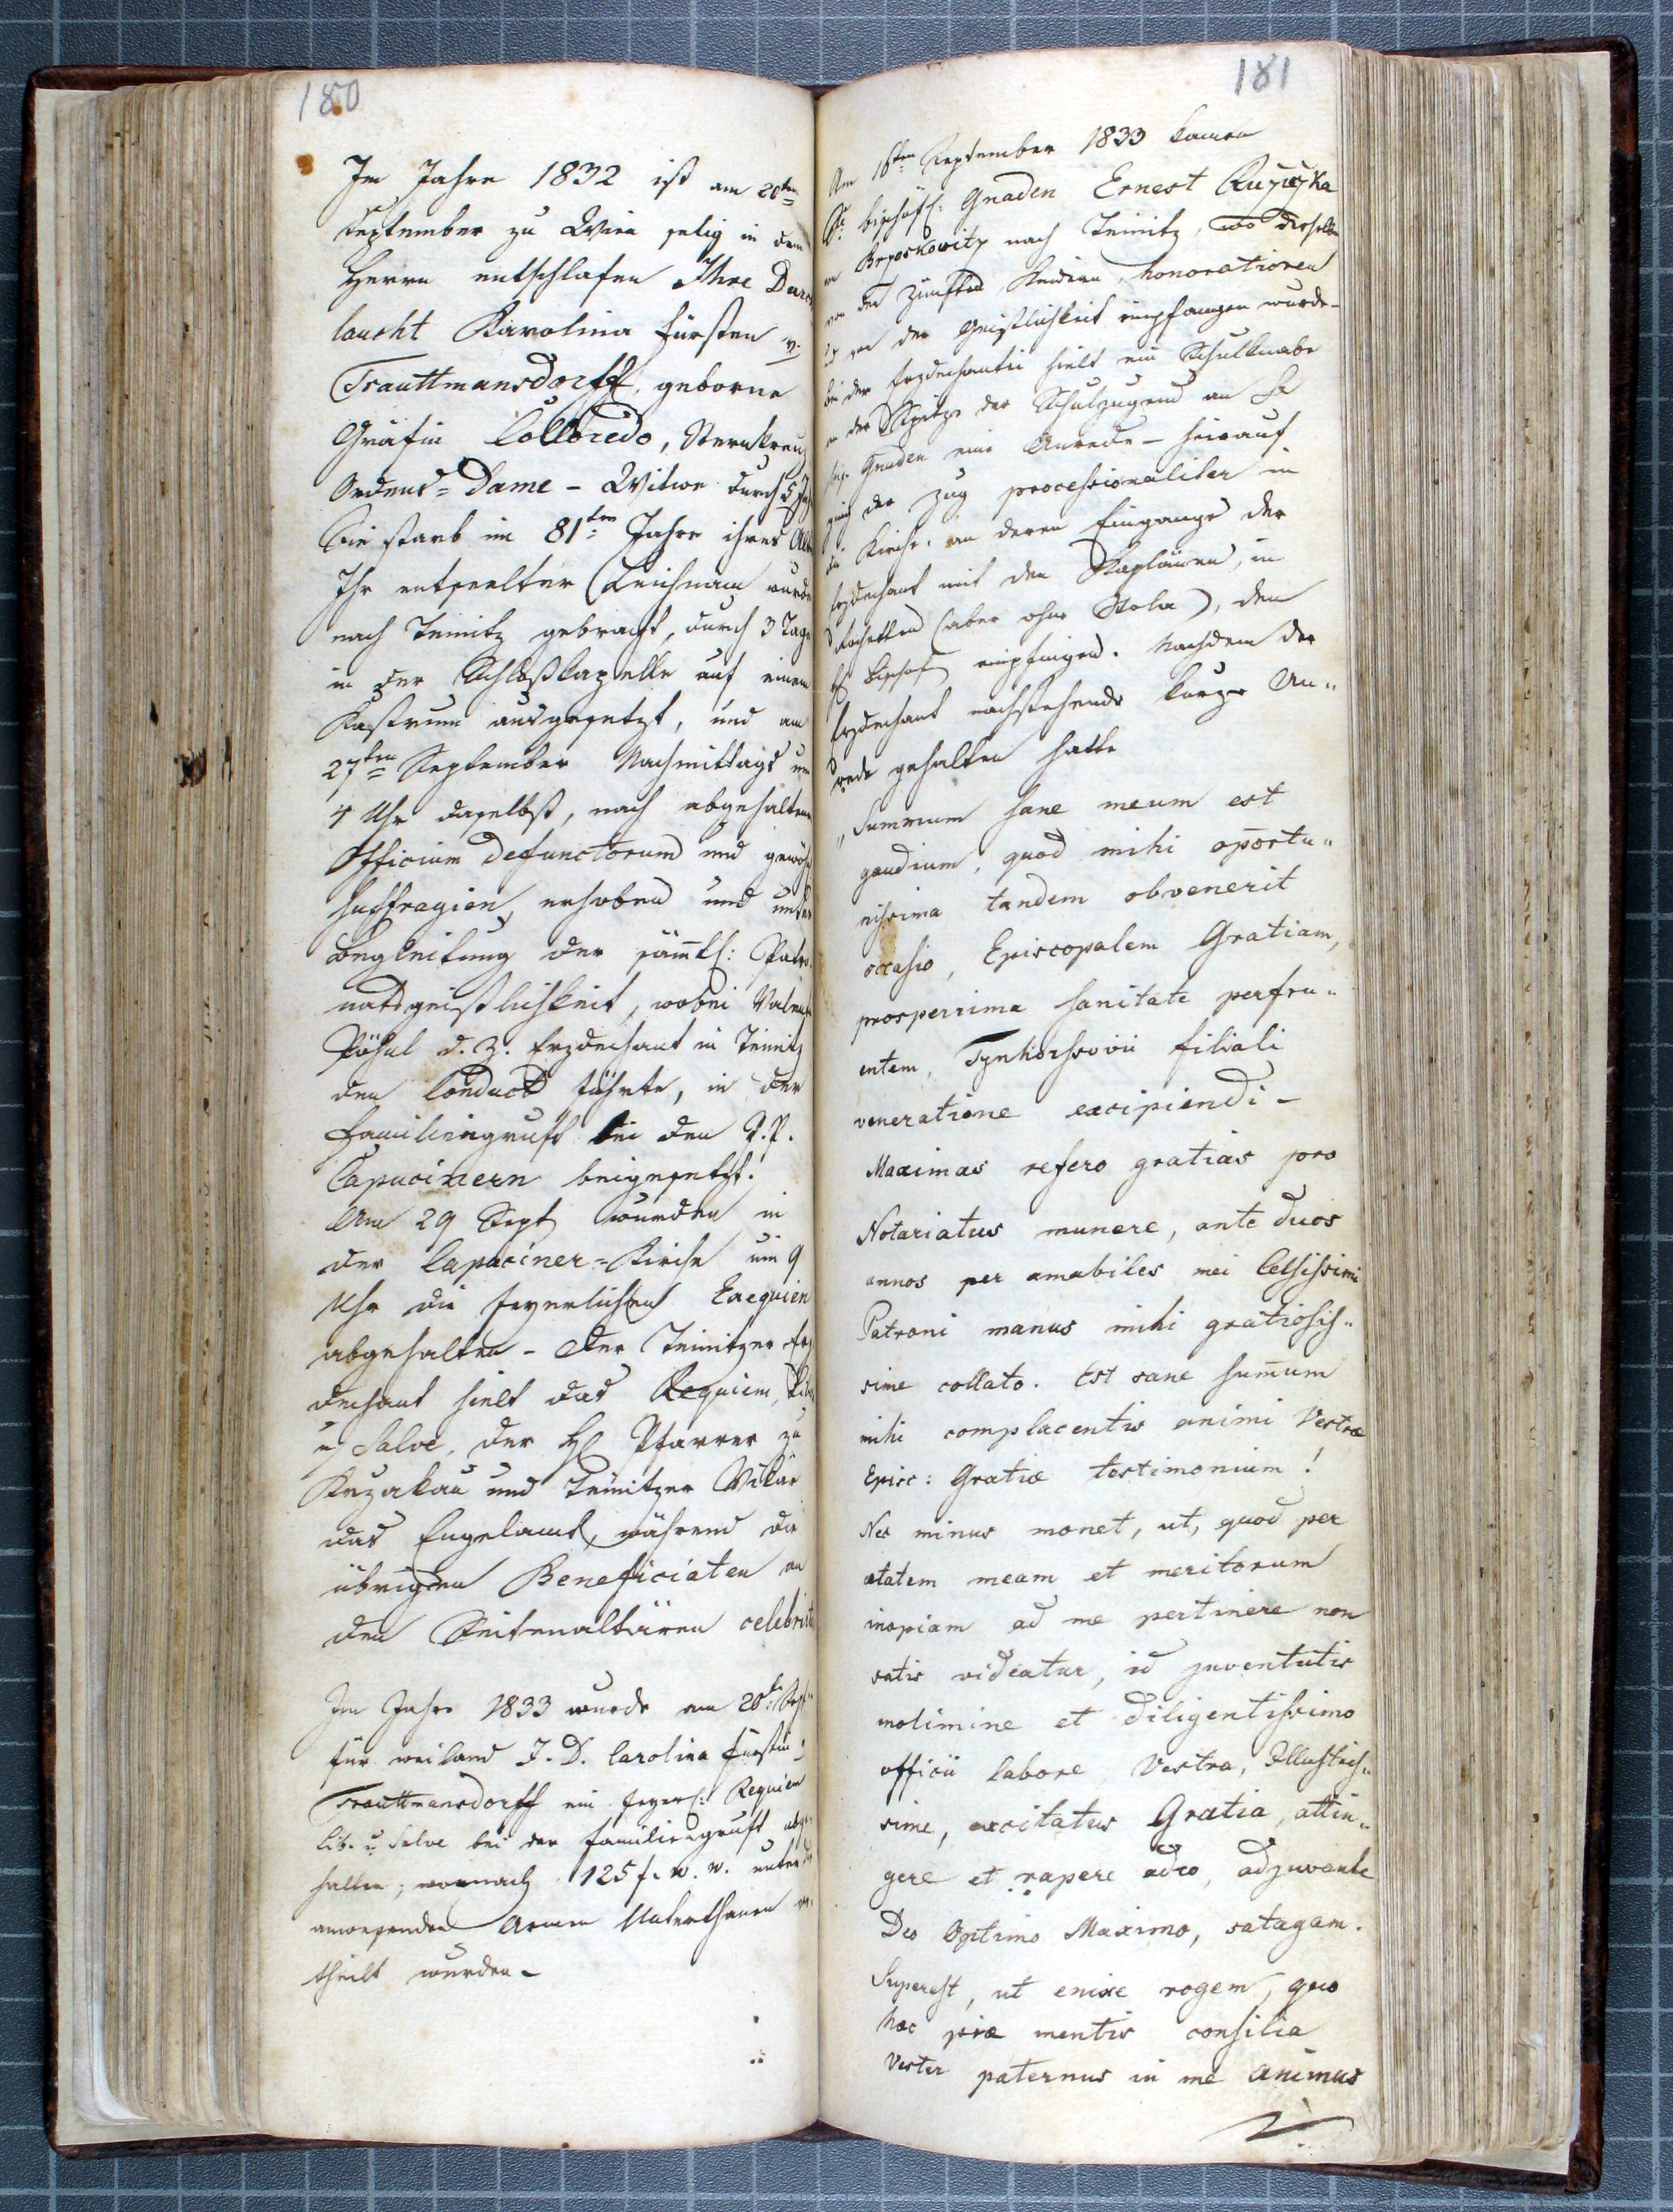 180
Im Jahre 1832 ist am 20ten
September zu Wien selig in dem
Herrn entschlafen Ihre Durch
laucht Karolina Fürsten v.
Trauttmansdorff, geborne
Gräfin Colloredo, Sternkreuz
Ordens=Dame – Witwe durch 5
Sie starb im 81ten Jahre ihres
Ihr entseelter Leichnam wurde
nach Teinitz gebracht, durch 3 Tage
in der Schloßkapelle auf einem
Kastrum ausgesetzt, und am
27ten September Nachmittags um
4 Uhr daselbst, nach abgehaltenen
Officium defunctorum und gewöhn
Suffragien, erhoben und unter
Begleitung der sämtl: Patro
natsgeistlichkeit, wobei
d. Z. Erzdechant in Teinitz
den Conduct führte, in der
Familiengruft bei den P.P.
Capucinern beigesetzt.
Am 29 Sept wurden in
der Capuciner=Kirche um 9
Uhr die feyerlichen Exequien
abgehalten – Der Teinitzer Erz
dechant hielt das Requiem,
u Salve, der H Pfarrer zu
und Teinitzer Vikär
das Engelamt, während die
übrigen Beneficiaten an
den Seitenaltären celebrirte
Im Jahre 1833 wurde am 20t Sept
für weiland I. D. Carolina Fürstin
Trauttmansdorff ein feyerl: Requien
Lib. u Salve bei der Familiengruft abge
halten; wornach 125 f. w. w. unter die
anwesenden Armen Unterthanen
theilt wurden –
181
Am 16ten September 1833 kamen
Se bischöfl: Gnaden Ernest Ružička
nach Teinitz, wo derselbe
von den Zünften, Honoratioren
der Geistlichkeit empfangen wurde –
bei der Erzdechantei hielt ein Schulknabe
der Spitze der Schuljugend an Se
Gnaden eine Anrede – hierauf
ging der Zug processionaliter in
die Kirche, an deren Eingange der
Erzdechant mit den Kaplänen, in
Rochetten (aber ohne Stola), den
H Bischof empfingen. Nachdem der
Erzdechant nachstehende kurze An„
rede gehalten hatte
„Summum sane meum est
gaudium, quod mihi oportu„
nissima tandem obvenerit
occasio, Episcopalem Gratiam,
prosperrima sanitate perfru„
entem, Tynhorssovii filiali
veneratione excipiendi –
Maximas refero gratias pro
Notariatus munere, ante duos
annos per amabiles mei Celsissimi
Patroni manus mihi gratiosis„
sime collato. Est sane sum̄um
mihi complacentis animi Vestræ
Episc: Gratiæ testimonium!
Nec minus monet, ut, quod per
ætatem meam et meritorum
inopiam ad me pertinere non
satis videatur, id juventutis
molimine et diligentissimo
officii labore, Vestra, Illustris„
sime, excitatus Gratia, attin„
gere et rapere adeo, adjuvante
Deo Optimo Maximo, satagam.
Superest, ut enixe rogem, quo
hæc piæ mentis consilia
Vester paternus in me animus